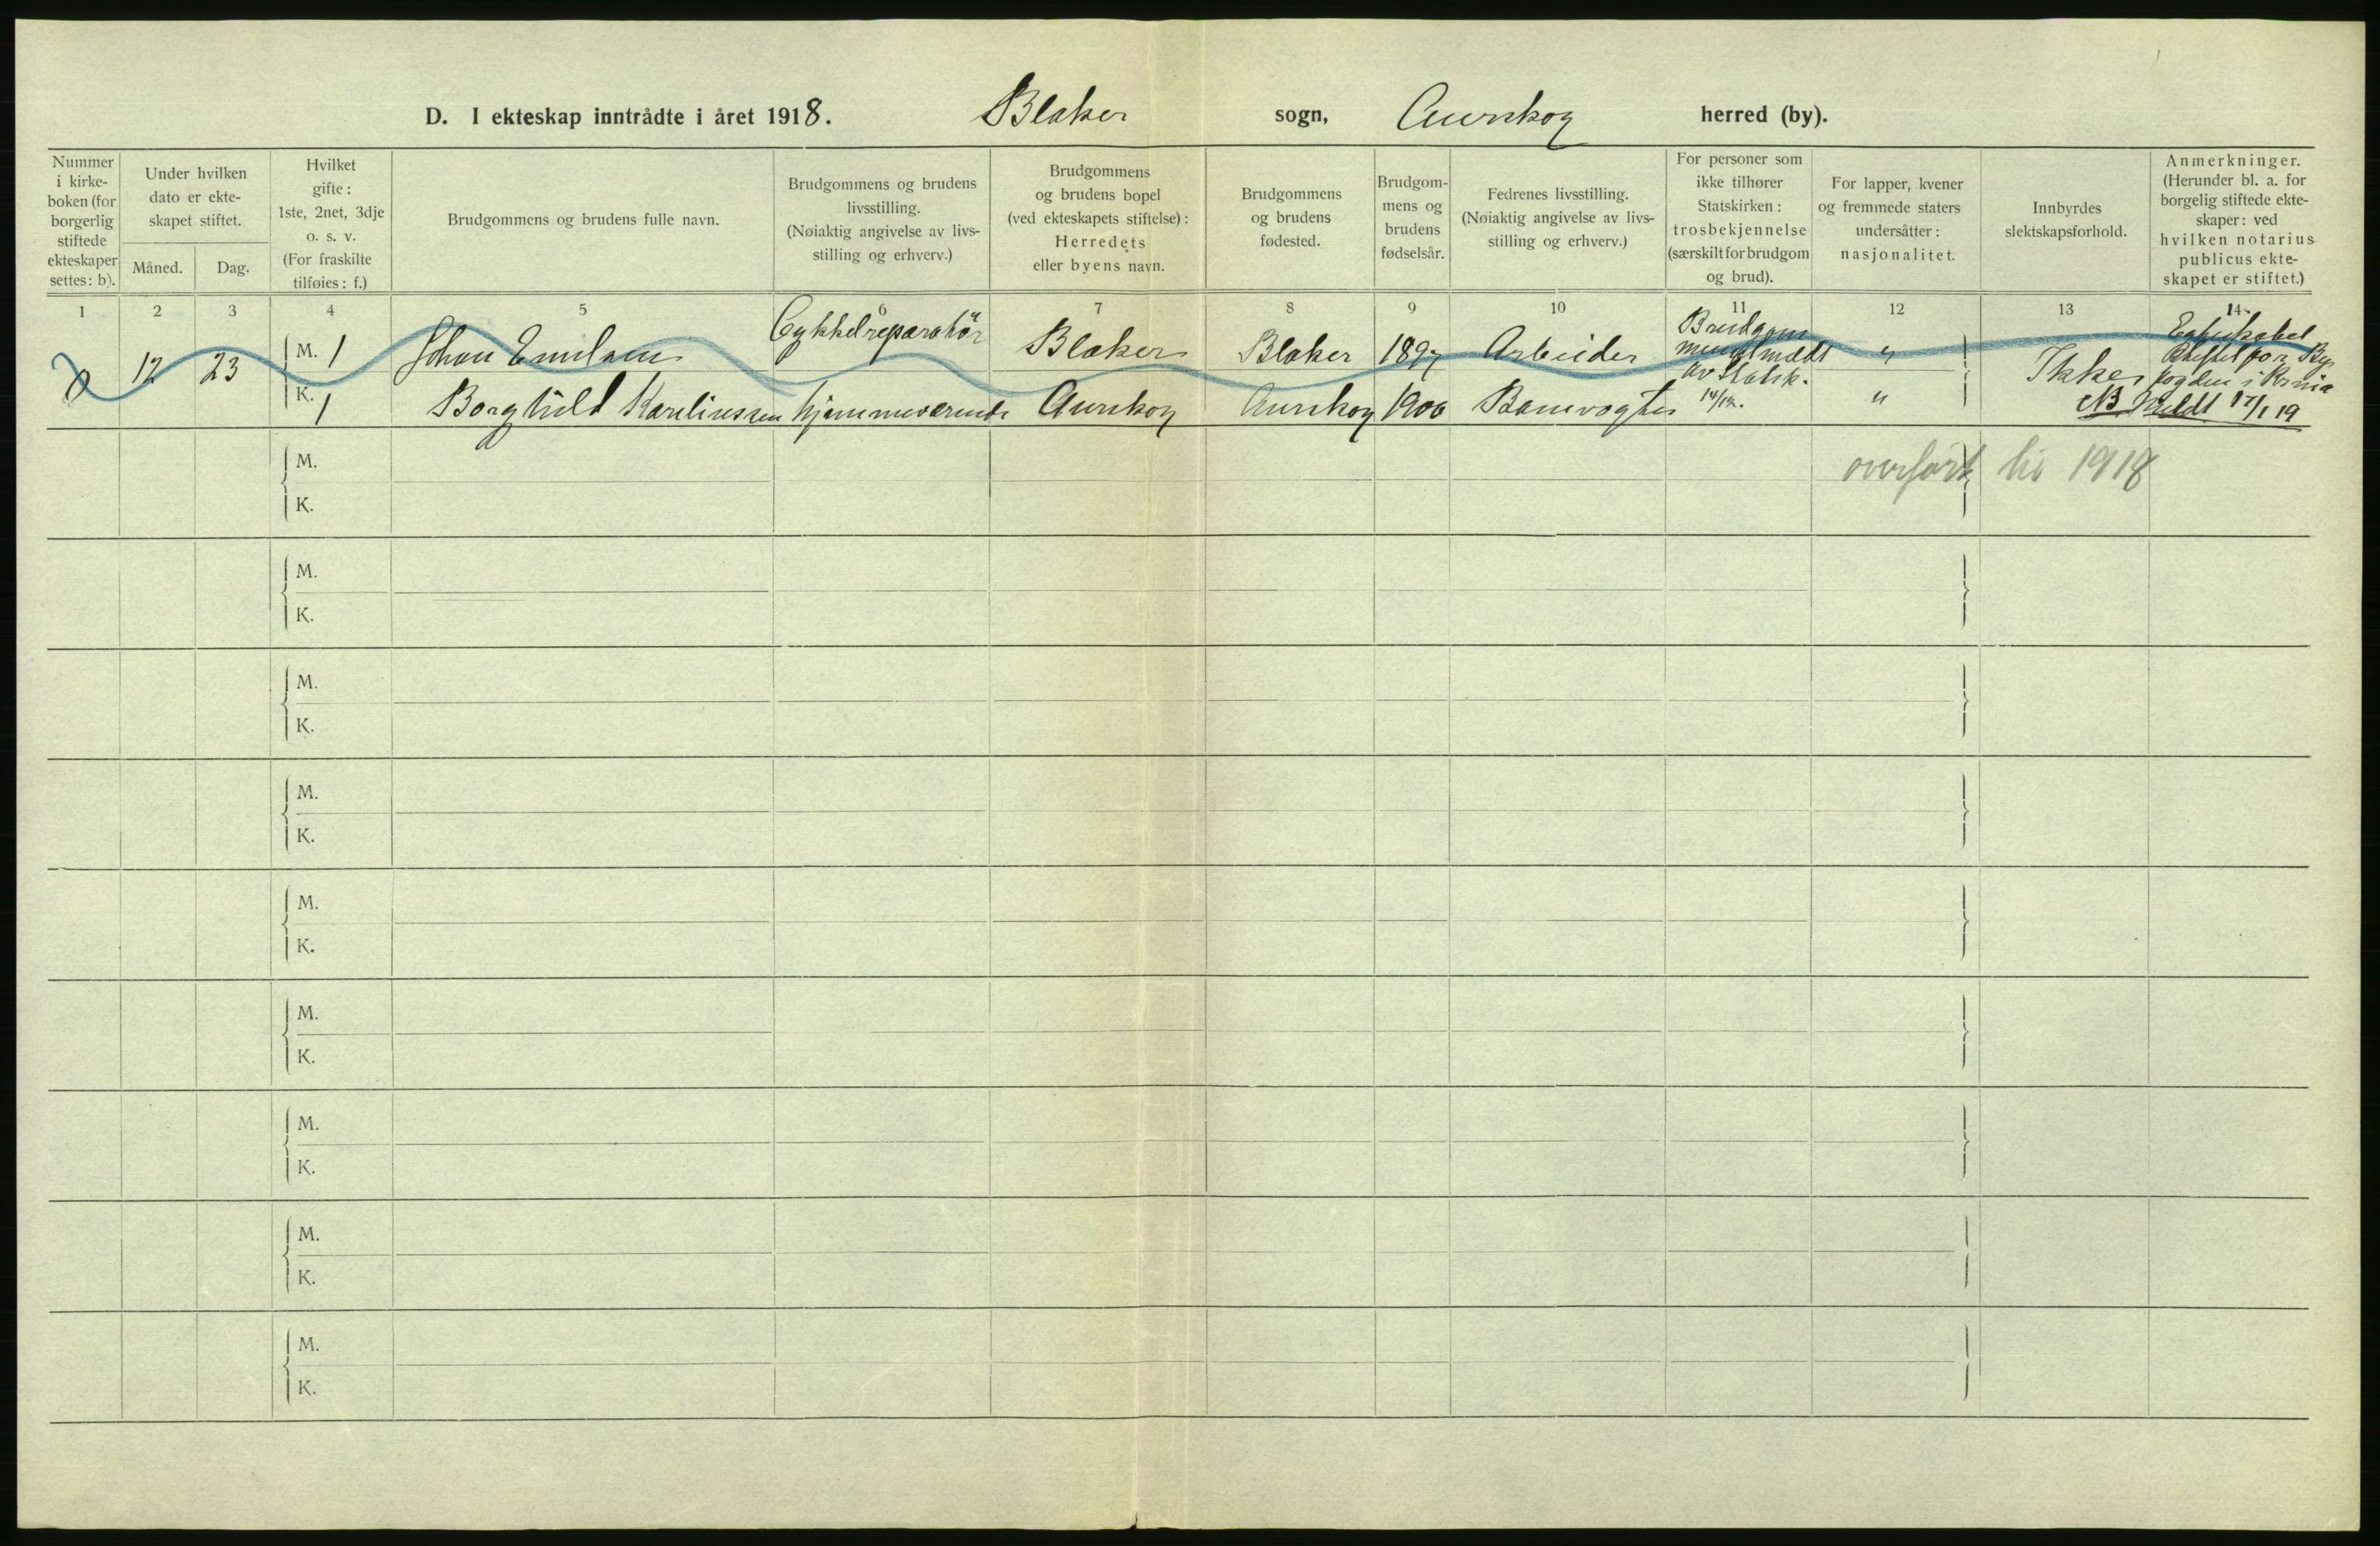 D. I ekteskap inntrådte i året 1918. Blaker sogn, Aurskog herred (by).
Nummer
i kirke-
boken (for
borgerlig
stiftede
ekteskaper
settes: b).
Under hvilken
dato er ekte-
skapet stiftet.
Måned. Dag.
Hvilket
gifte:
1ste, 2net, 3dje
o. s. v.
(For fraskilte
tilføies: f.)
Brudgommens og brudens fulle navn.
Brudgommens og brudens
livsstilling.
(Nøiaktig angivelse av livs-
stilling og erhverv.)
Brudgommens
og brudens bopel
(ved ekteskapets stiftelse):
Herredets
eller byens navn.
Brudgommens
og brudens
fødested.
Brudgom-
mens og
brudens
fødselsår.
Fedrenes livsstilling.
(Nøiaktig angivelse av livs-
stilling og erhverv.)
For personer som
ikke tilhører
Statskirken:
trosbekjennelse
(særskilt for brudgom
og brud).
For lapper, kvener
og fremmede staters
undersåtter:
nasjonalitet.
Innbyrdes
slektskapsforhold.
Anmerkninger.
(Herunder bl. a. for
borgelig stiftede ekte-
skaper: ved
hvilken notarius
publicus ekte-
skapet er stiftet.)
1 2 3 4 5 6 7 8 9 10 11 12 13 14
12 23
M. 1 Johan Emilsen Cykkelreparatör Blaker Blaker 1897 Arbeider
Brudgom
men utmeldt
av Statsk.
14/12.
"
K. 1 Borghild Karlinssen hjemmeværende Aurskog Aurskog 1900 Banevogter "
Ikke
Egteskabet
stiftet for By
fogden i Krnia
NB Meldt 17/1 19
overført til 1918
M.
K.
M.
K.
M.
K.
M.
K.
M.
K.
M.
K.
M.
K.
M.
K.
M.
K.